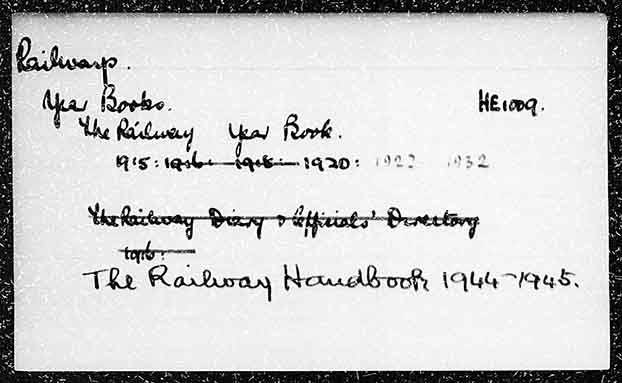 Railways.
Year Books. HE1009.
The Railway Year Book.
1915: 1916 1918 1920: 1923 1932
The Railway Diary & Officials' Directory
1916:
The Railway Handbook 1944-1945.